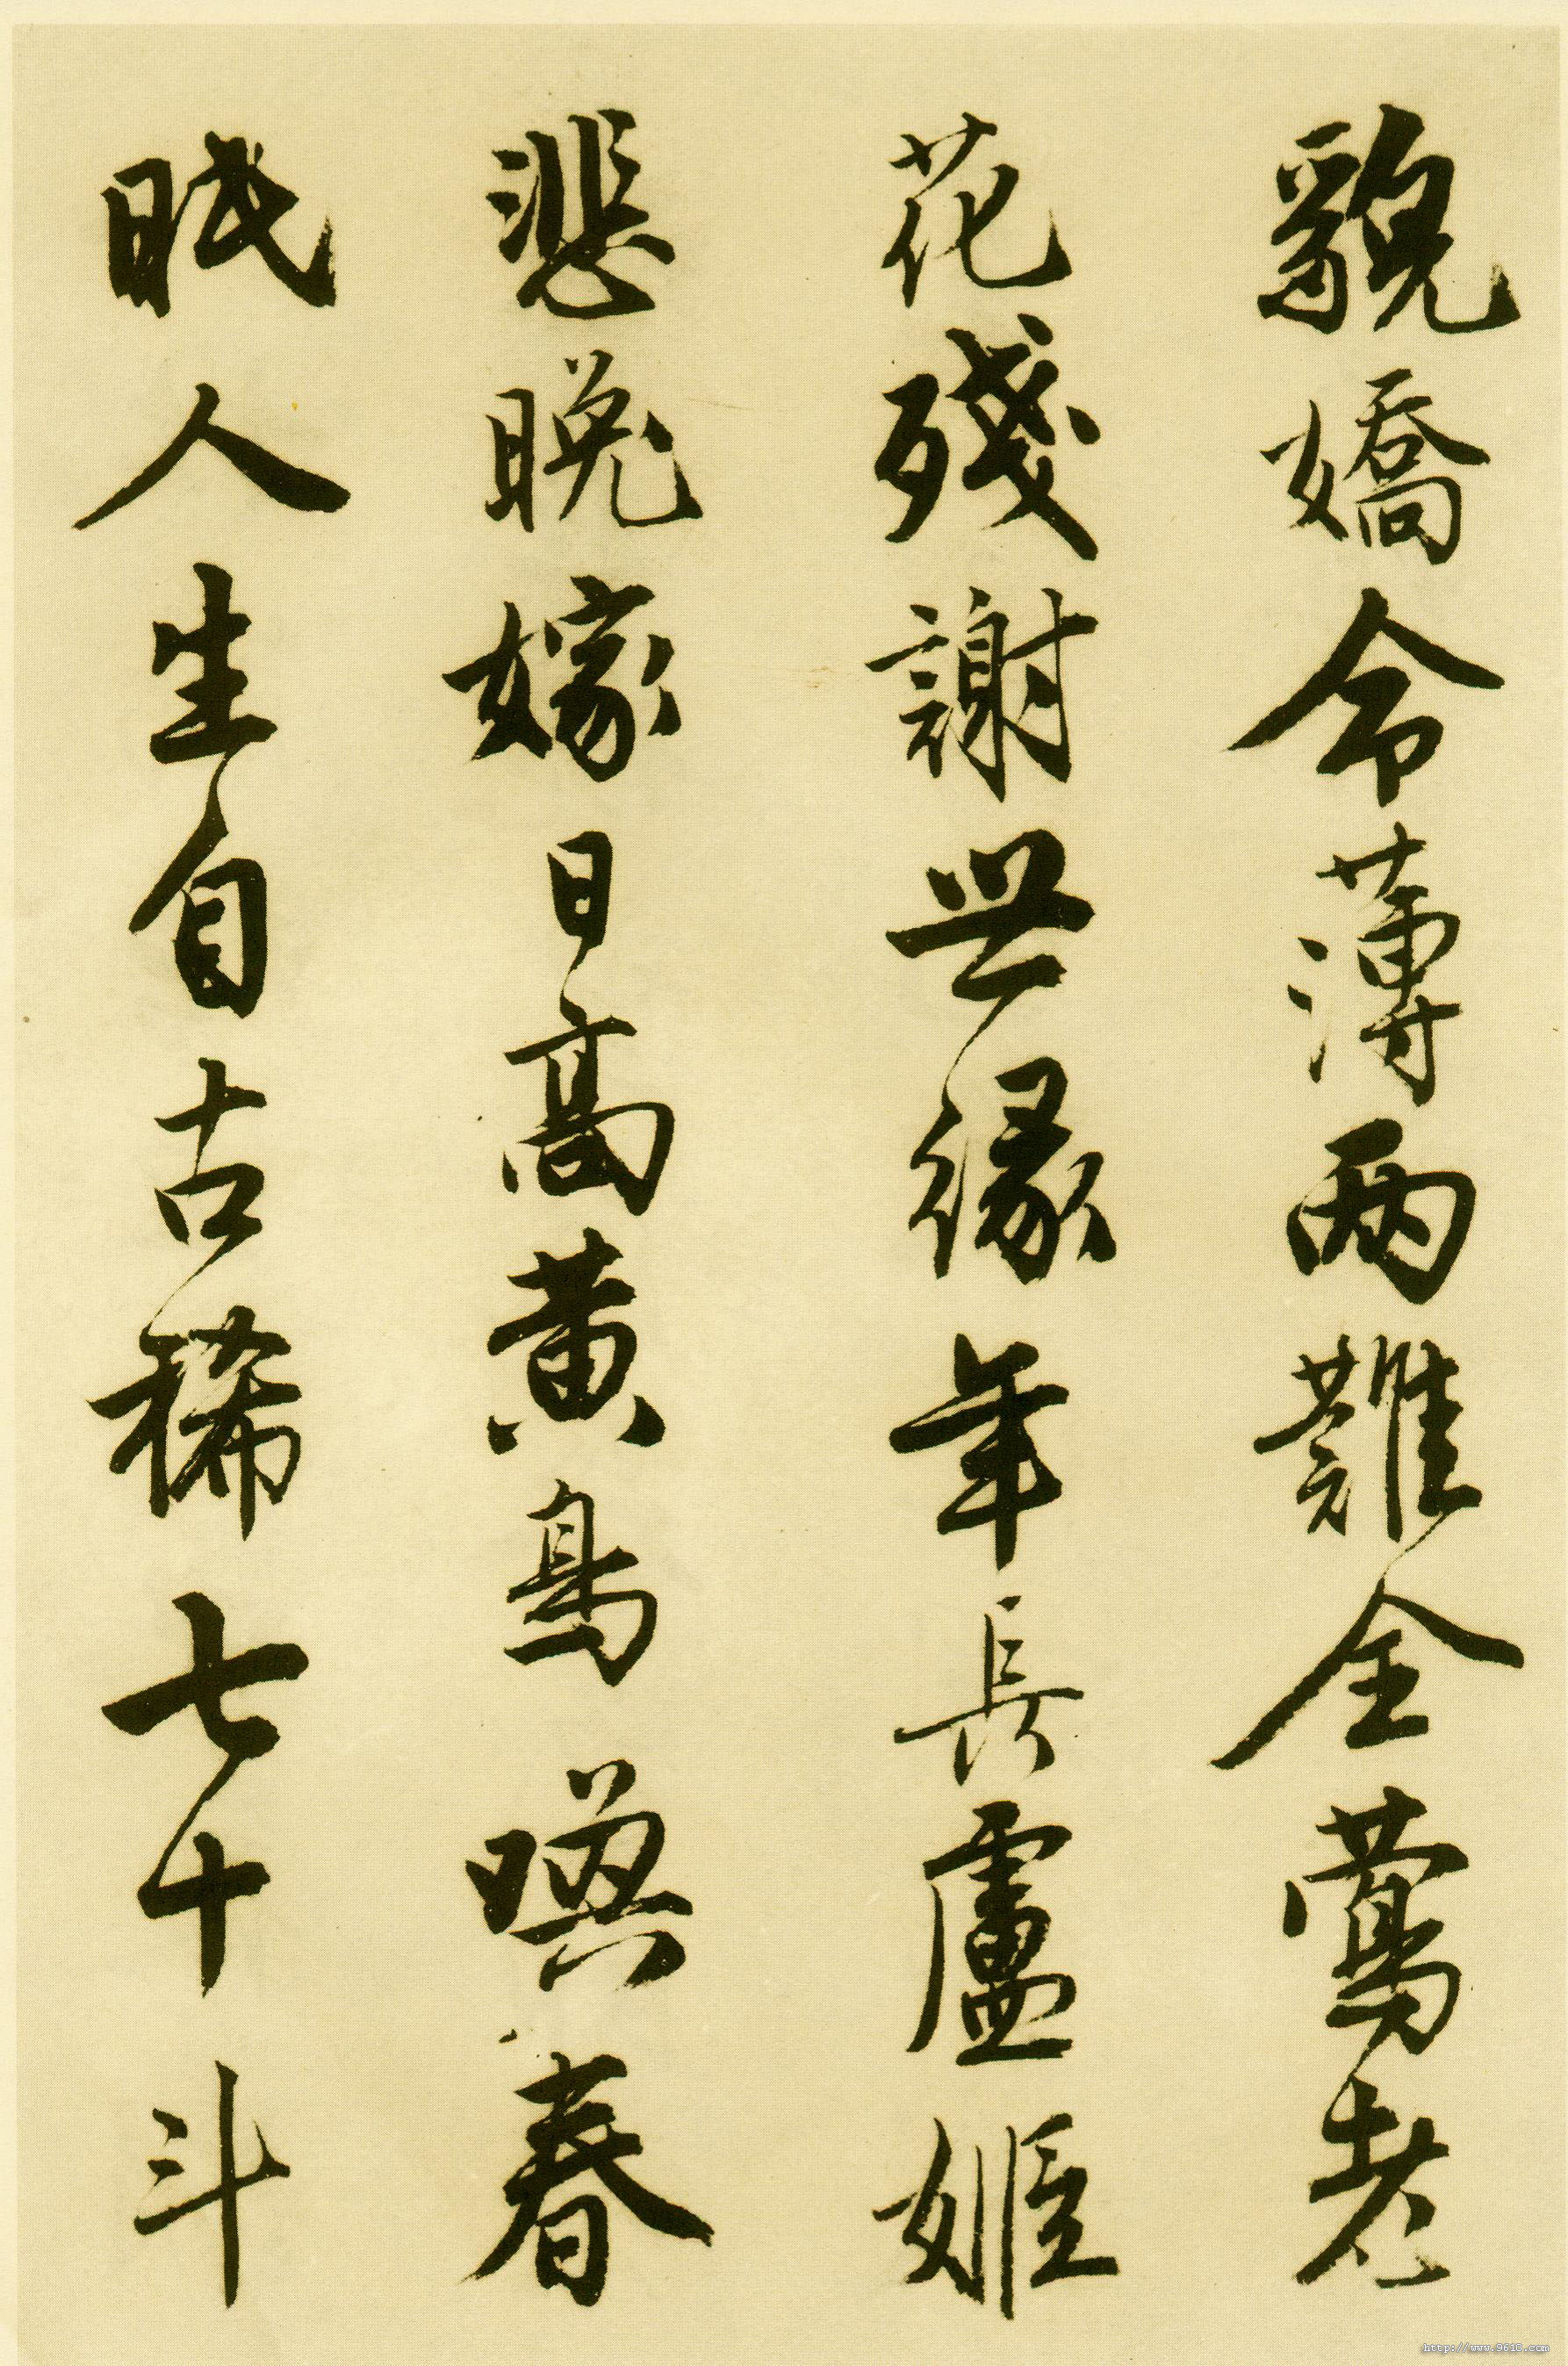 貌嬌命薄兩難全鶯老
花殘謝世緣年長盧姬
悲晚嫁日高黃鳥喚春
眠人生自古稀七十斗
http://www.9610.com